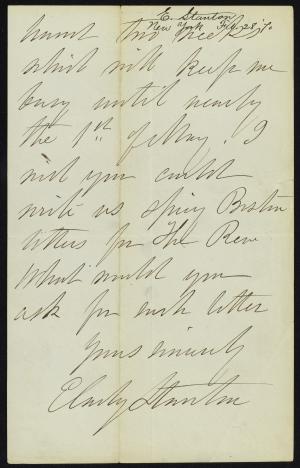 E. Stanton
New York Feb 28 '70
two weeks
which will keep me
busy until nearly
the 1st of May. I
wish you could
write us spicy Boston
letters for The Rev
What would you
ask for each letter
Yours sincerely
E Cady Stanton